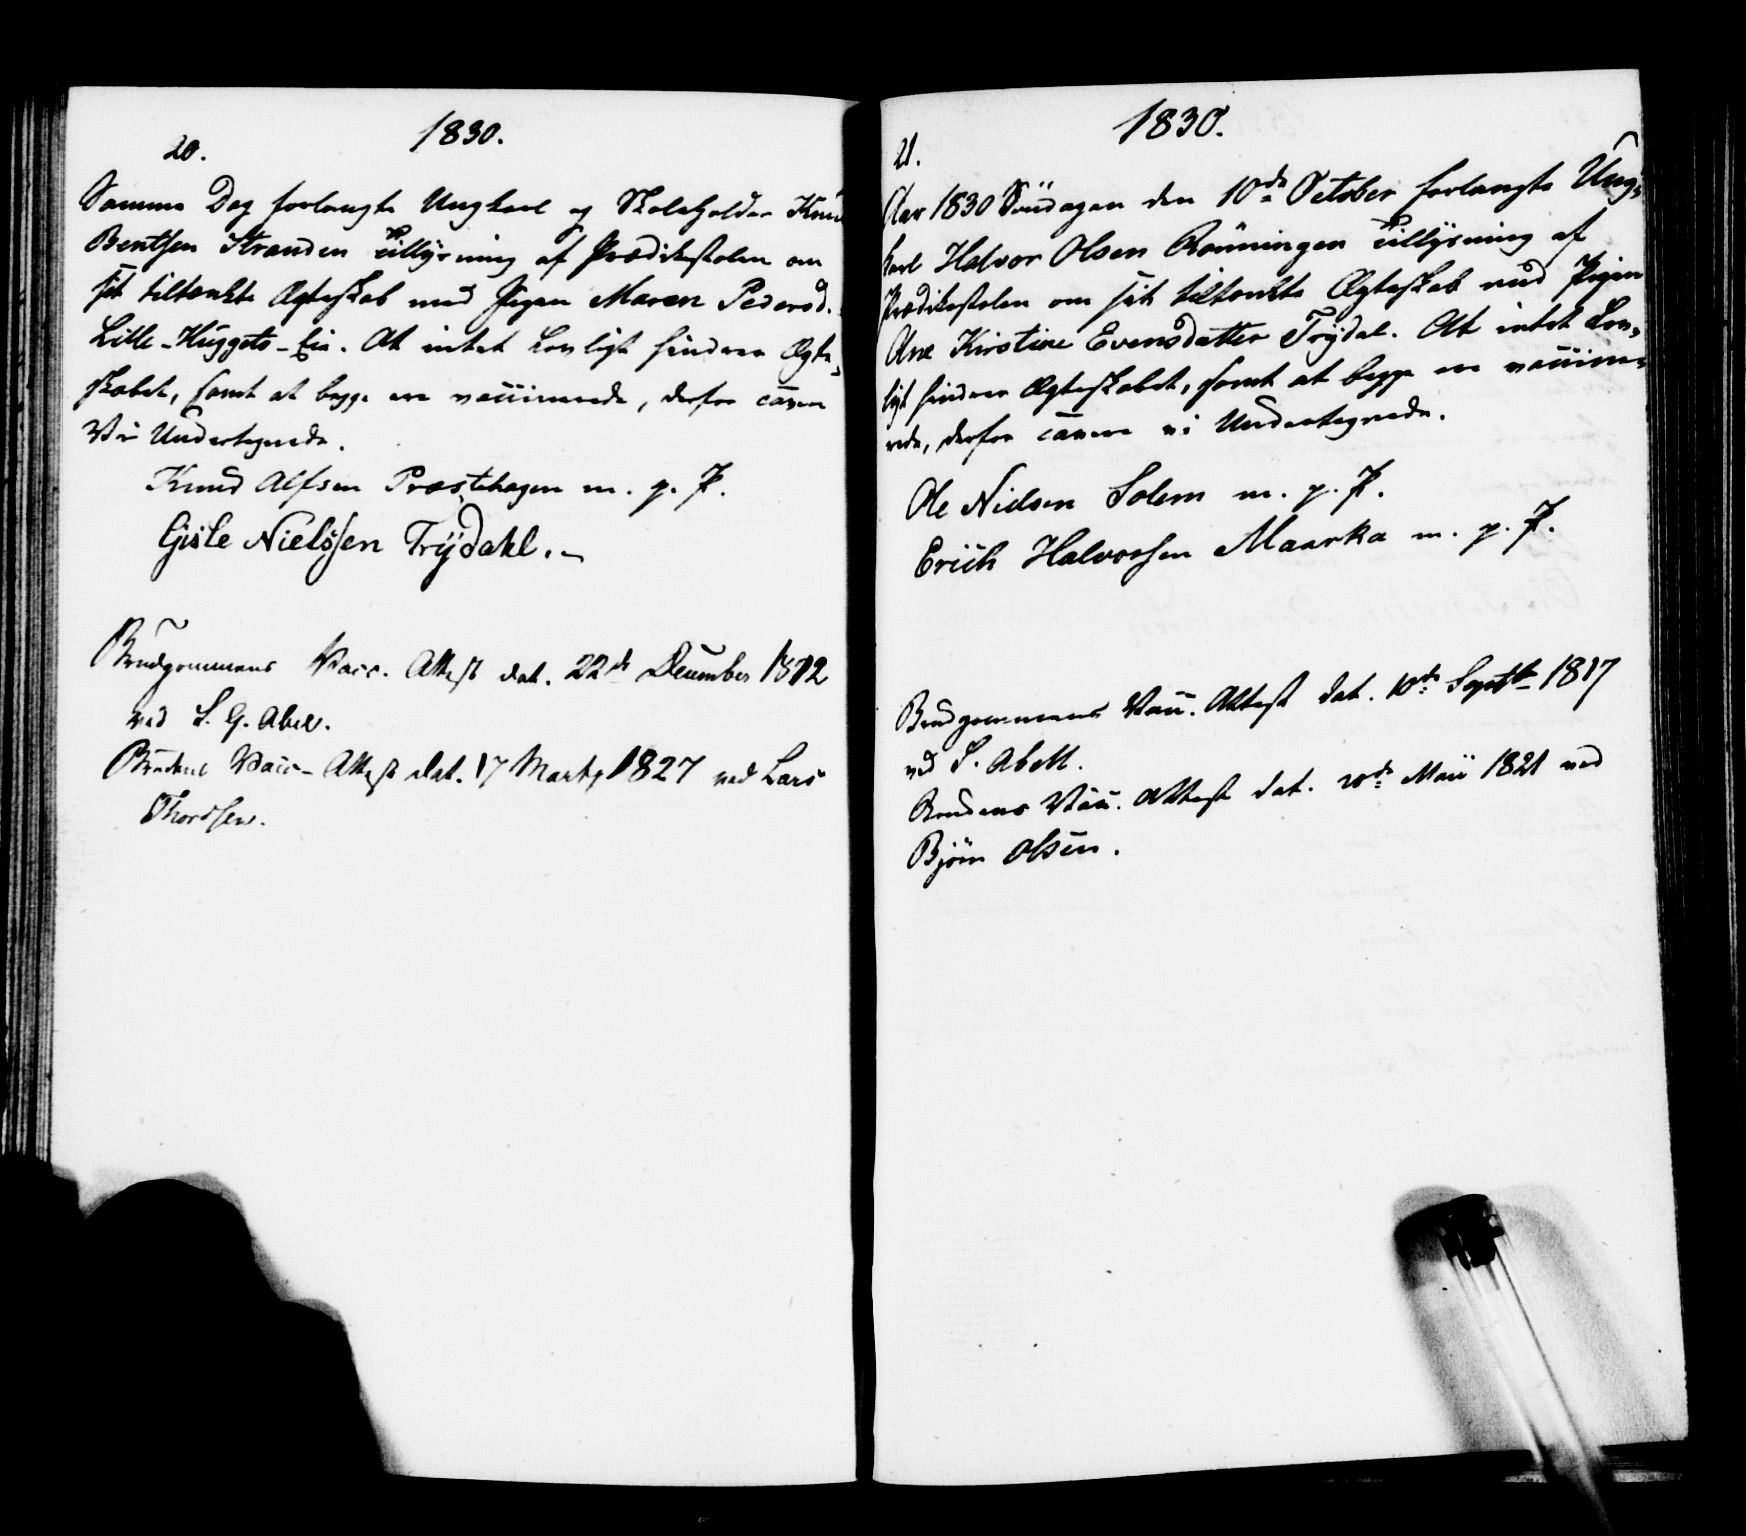 1830.
20.
Samme Dag forlangte Ungkarl og Skoleholder Knud
Bentsen Stranden Tillysning af Prædikestolen om
sit tiltænkte Ægteskab med Pigen Maren Pedersd.
Lille-Huggets-Eie. At intet Lovligt hindrer Ægte„
skabet, samt at begge ere vaccinerede, derfor cavere
Vi Undertegnede.
Knud Alfsen Præstehagen m. p. P.
Gisle Nielssen Trÿdahl.-
Brudgommens Vacc. Attest dat. 22de December 1812
ved S. G. Abel.
Brudens Vacc- Attest dat. 17 Marty 1827 ved Lars
Thordsen.
1830.
21.
Aar 1830 Søndagen den 10de October forlangte Ung„
karl Halvor Olsen Rønningen Tillysning af
Prædikestolen om sit tiltænkte Ægteskab med Pigen
Ane Kirstine Evensdatter Trÿdal. At intet Lov„
ligt hindrer Ægteskabet, samt at begge ere vaccine„
rede, derfor cavere vi Undertegnede.
Ole Nielsen Solem m. p. P.
Erich Halvorsen Maarka m. p. P.
Brudgommens Vacc. Attest dat. 10de Septbr 1817
ved S. Abell.
Brudens Vacc. Attest dat. 20de Maii 1821 ved
Bjørn Olsen.